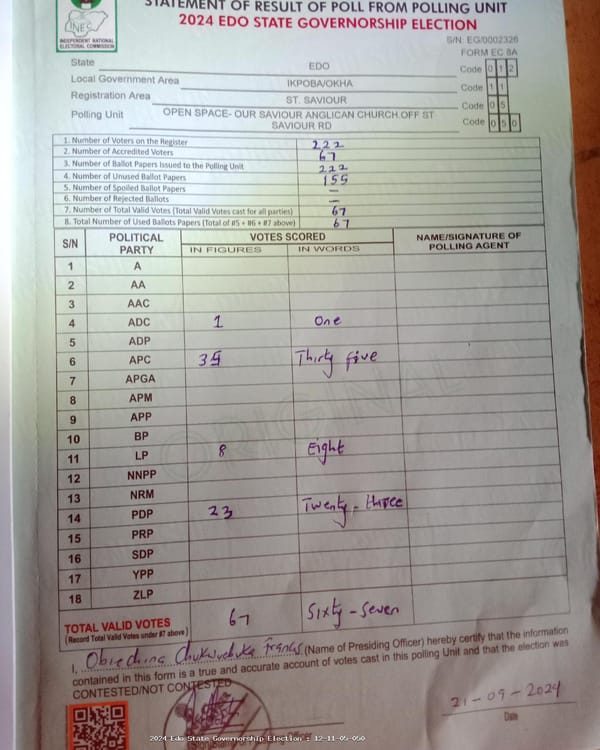 STATEMENT OF RESULT OF POLL FROM POLLING UNIT
2024 EDO STATE GOVERNORSHIP ELECTION
INEC
INDEPENDENT NATIONAL
ELECTORAL COMMISSION
S/N: EG/0002326
FORM EC 8A
State EDO Code 0 1 2
Local Government Area IKPOBA/OKHA Code 1 1
Registration Area ST. SAVIOUR Code 0 5
Polling Unit OPEN SPACE- OUR SAVIOUR ANGLICAN CHURCH OFF ST SAVIOUR RD Code 0 5 0
1. Number of Voters on the Register 222
2. Number of Accredited Voters 67
3. Number of Ballot Papers Issued to the Polling Unit 222
4. Number of Unused Ballot Papers 155
5. Number of Spoiled Ballot Papers –
6. Number of Rejected Ballots –
7. Number of Total Valid Votes (Total Valid Votes cast for all parties) 67
8. Total Number of Used Ballots Papers (Total of #5 + #6 + #7 above) 67
S/N POLITICAL PARTY VOTES SCORED NAME/SIGNATURE OF POLLING AGENT
IN FIGURES IN WORDS
1 A
2 AA
3 AAC
4 ADC 1 One
5 ADP
6 APC 35 Thirty five
7 APGA
8 APM
9 APP
10 BP
11 LP 8 Eight
12 NNPP
13 NRM
14 PDP 23 Twenty-three
15 PRP
16 SDP
17 YPP
18 ZLP
ORIGINAL
TOTAL VALID VOTES 67 Sixty-seven
(Record Total Valid Votes under #7 above)
I, Obiechina Chukwuebuka Francis (Name of Presiding Officer) hereby certify that the information
contained in this form is a true and accurate account of votes cast in this polling Unit and that the election was
CONTESTED/NOT CONTESTED
21-09-2024
Date
2024 Edo State Governorship Election : 12-11-05-050